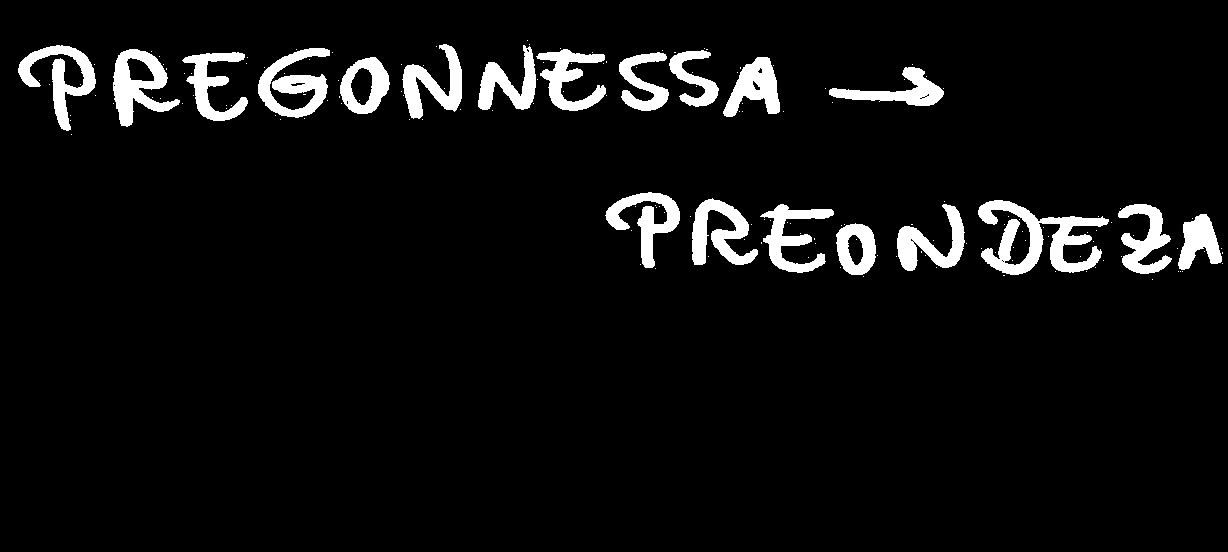 PREGONNESSA →
PREONDEZA